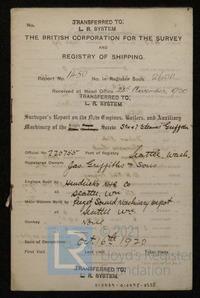 TRANSFERRED TO:
No. L. R. SYSTEM
THE BRITISH CORPORATION FOR THE SURVEY
AND
REGISTRY OF SHIPPING.
Report No. 1450 No. in Register Book
Received at Head Office 22nd November 1920
TRANSFERRED TO:
L. R. SYSTEM
Surveyor's Report on the New Engines, Boilers, and Auxiliary
Machinery of the Screw
Official No. 220755 Port of Registry Seattle, Wash.
Registered Owners Jas Griffiths & Sons
Engines Built by
at Seattle Wn
Main Boilers Built by Puget Sound Machinery Depot
at Seattle Wn
Donkey
at
Date of Completion Oct 6th 1920
First Visit Last Visit Total Visits
TRANSFERRED TO:
L. R. SYSTEM
© 2021
Lloyd's Register Foundation